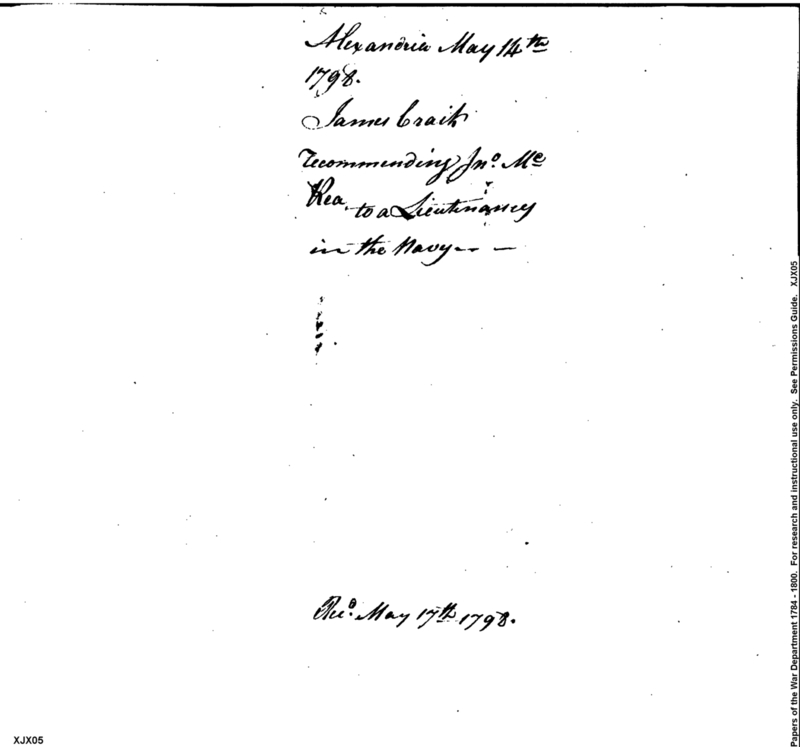 Alexandria May 14th
1798.
James Craik
recommending Jno. Mc
Rea to a Lieutenancy
in the Navy-- —
Recd. May 17th 1798.
Papers of the War Department 1784 - 1800. For research and instructional use only. See Permissions Guide. XJX05
XJX05